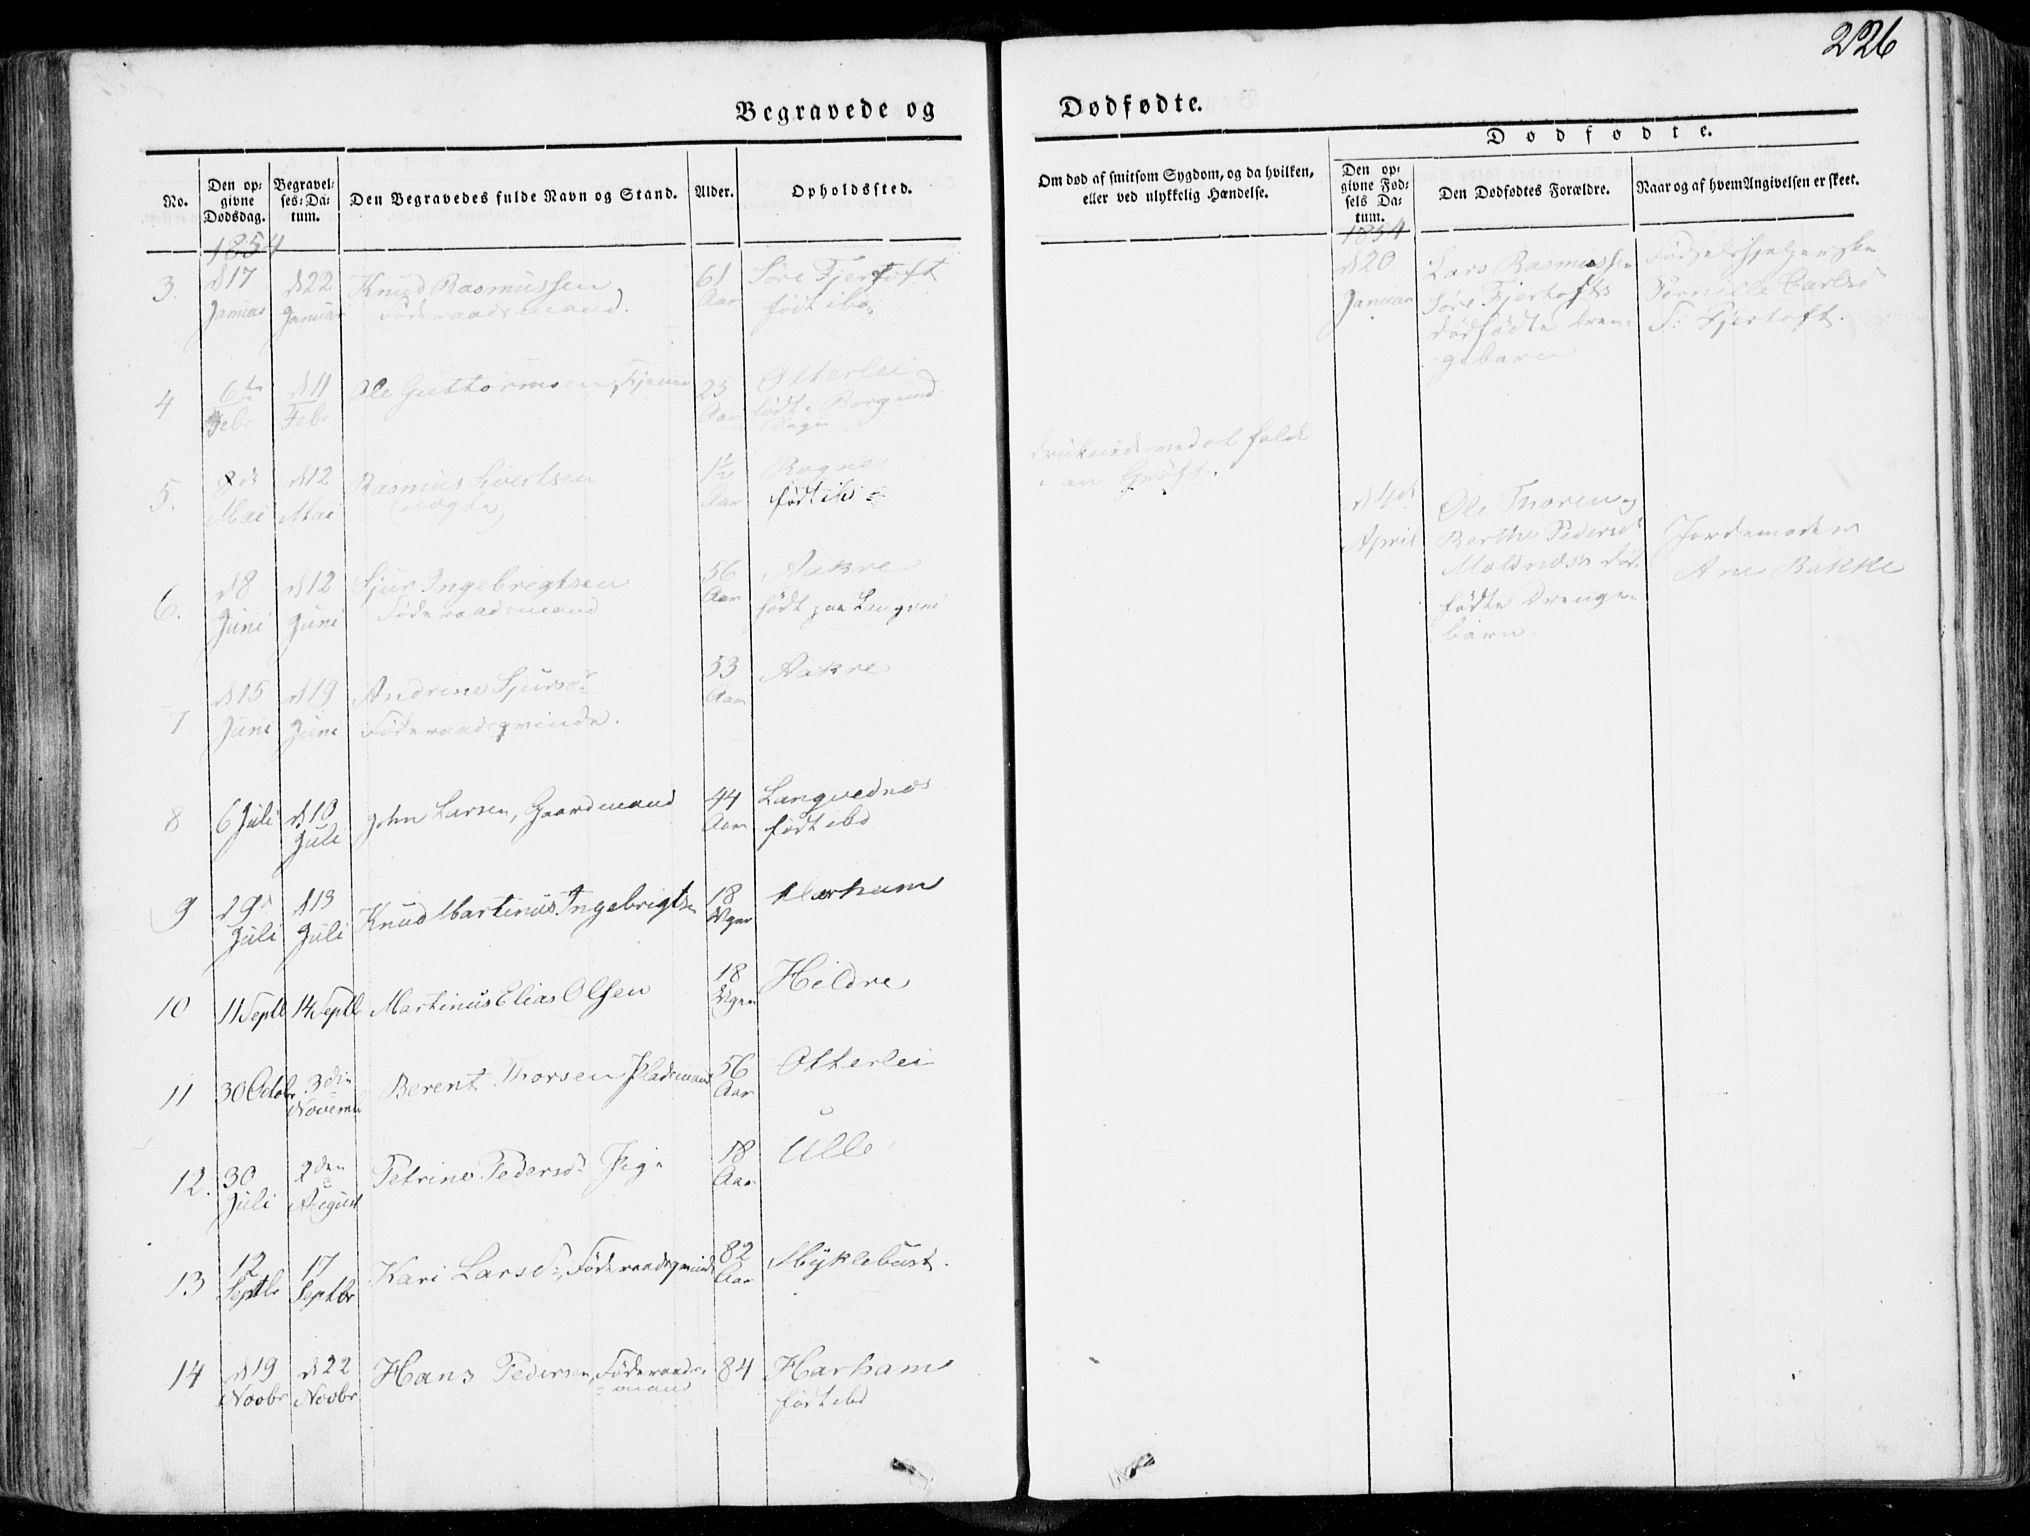 226
Begravede og Dødfødte.
No.
Den opgivne Dødsdag.
Begravelses-Datum.
Den Begravedes fulde Navn og Stand.
Alder.
Opholdssted.
Om død af smitsom Sygdom, og da hvilken,
eller ved ulykkelig Hændelse.
Dødfødte.
Den opgivne Fødsels Datum.
Den Dødfødtes Forældre.
Naar og af hvem Angivelsen er skeet.
1854
3. d 17 Januar d 22 Januar Knud Rasmussen 61 Aar Søre Fjertoft
Føderaadsmand. født ibd
4 6te Febr d 11 Febr Ole Guttormsen, 25 Aar Otterlei
født i Borgund
Sogn
5. 8de Mai d 12 Mai Rasmus Evertsen 1½ Aar Rogne
(uægte) født ibd
druknede ved at falde
i en Grøft.
6. d 8 Juni d 12 Juni Sjur Ingebrigtsen 56 Aar Aakre
Føderaadsmand født paa
7 d 15 Juni d 19 Juni Andrine Sjursdr 53 Aar Aakre
Føderaadsqvinde.
8 6 Juli d 10 Juli John Larsen, Gaardmand 44 Aar Langvednes
født ibd
9 d 9d Juli d 13 Juli Knud Martinus Ingebrigtsen 18 Uger Harham
10 11 Septb 14 Septb Martinus Elias Olsen 18 Uger Hildre
11 30 Octobr 3die Novemb Berent Thorsen Pladsmand 56 Aar Otterlei
12. 30 Juli 2den August Petrine Pedersd Pige 18 Aar Ulle
13 12 Septbr 17 Septbr Kari Larsd:, Føderaadsqvinde 82 Aar Myklebust.
14 d 19 Novbr d 22 Novbr Hans Pedersen, Føderaads- 84 Harham
mand født ibd
1854
d 20 Januar Lars Rasmussen
Søre Fjertofts
dødfødte Dren-
gebarn
Fødselshjelpersken
Pernille Carlsd
S: Fjertoft.
d 4de April Ole Thoren og
Berthe Pedersd
Moldnes's død-
fødte Drenge-
barn
Jordemoderen
Ane Bakke